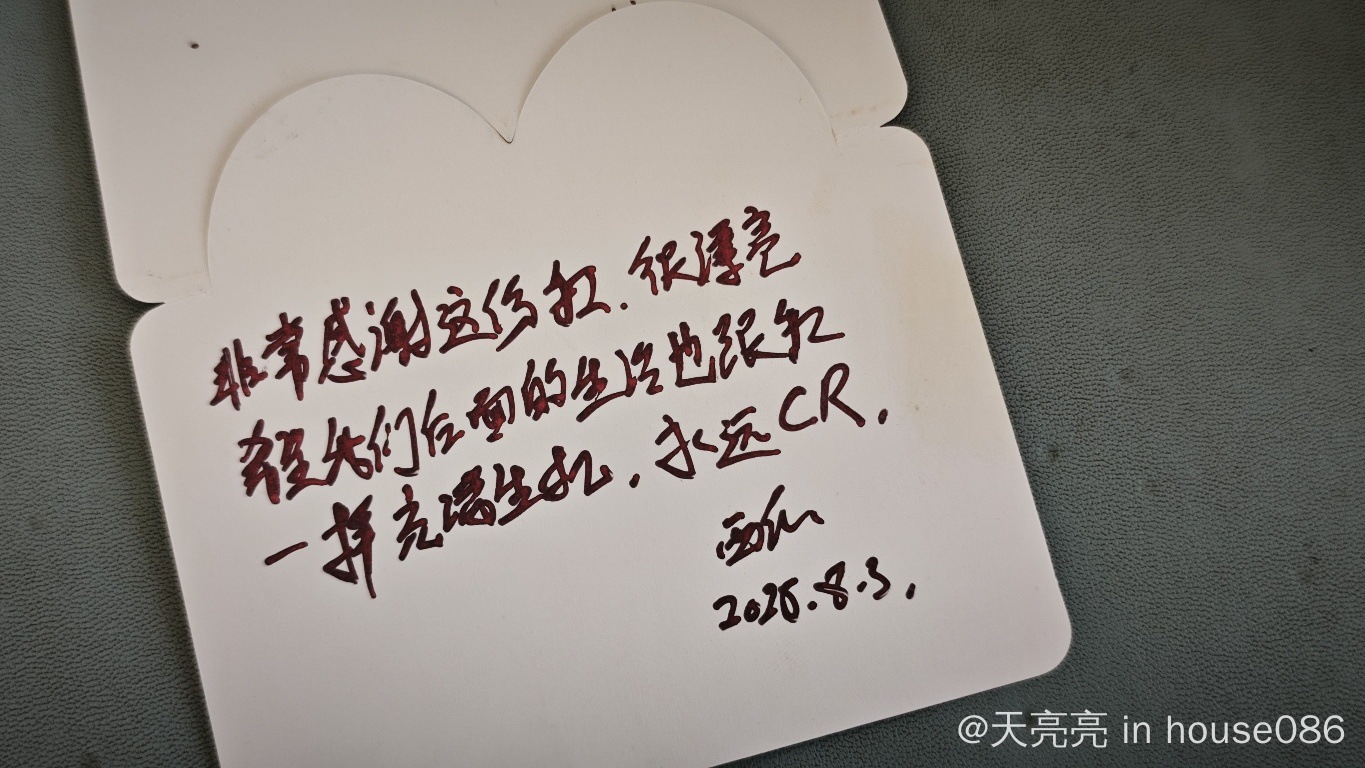 非常感谢这份礼.很漂亮
希望我们后面的生活也跟礼
一样充满生机.永远CR.
西
2025.8.3.
@天亮亮 in house086